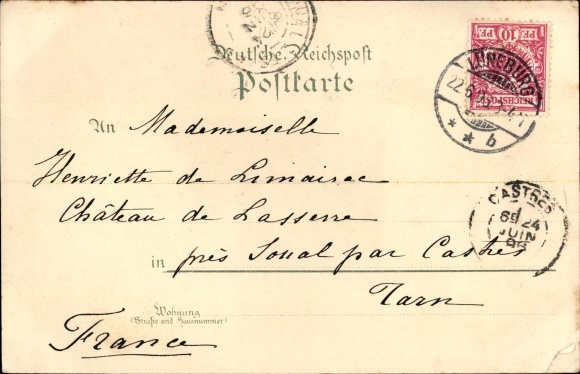 Deutsche Reichspost
Postkarte
10 PF
REICHSPOST
LÜNEBURG
22.6.95
* * b
An Mademoiselle
Henriette de Limairac
Château de Lasserre
in près Soual par Castres
Tarn
CASTRES
24
JUIN
95
Wohnung
(Straße und Hausnummer)
France